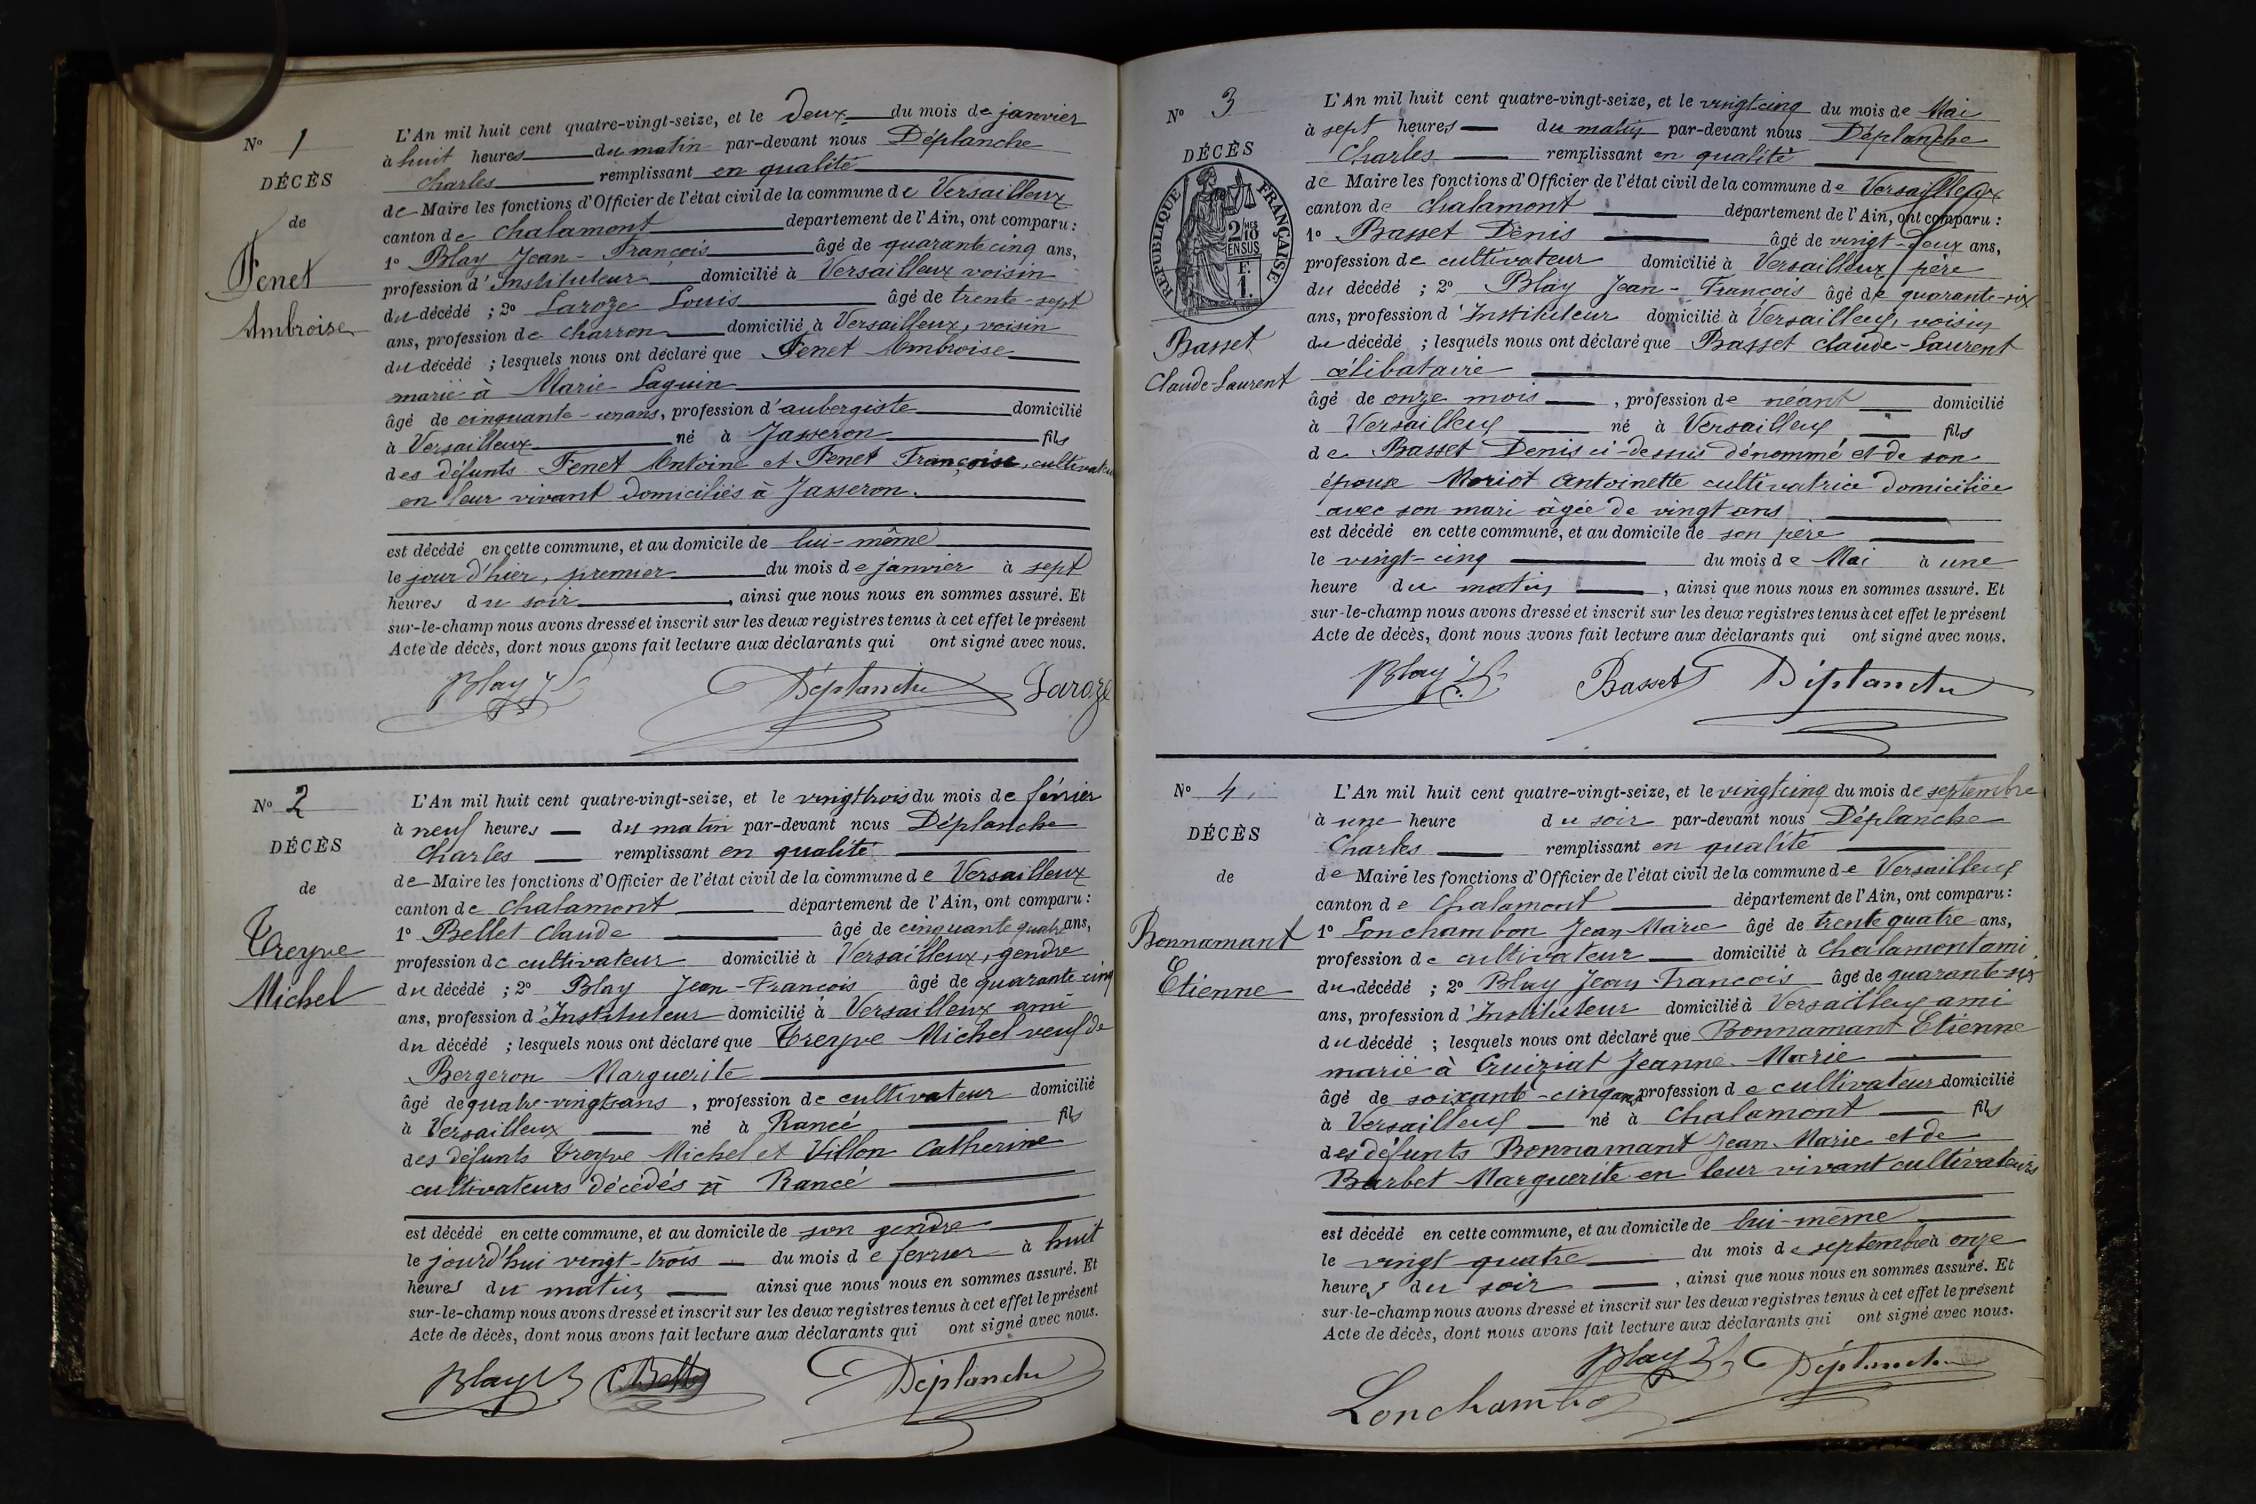 N° 1
DÉCÈS
de
Fenet
Ambroise
L'An mil huit cent quatre-vingt-seize, et le deux du mois de janvier
à huit heures du matin par-devant nous Déplanche
Charles remplissant en qualité
de Maire les fonctions d'Officier de l'état civil de la commune de Versailleux
canton de Chalamont département de l'Ain, ont comparu :
1° Blay Jean-François âgé de quarante cinq ans,
profession d'Instituteur domicilié à Versailleux voisin
du décédé ; 2° Laroze Louis âgé de trente-sept
ans, profession de charron domicilié à Versailleux, voisin
du décédé ; lesquels nous ont déclaré que Fenet Ambroise
marié à Marie Laguin
âgé de cinquante-un ans, profession d'aubergiste domicilié
à Versailleux né à Jasseron fils
des défunts Fenet Antoine et Fenet Françoise, cultivateurs
en leur vivant domiciliés à Jasseron.
est décédé en cette commune, et au domicile de lui-même
le jour d'hier, premier du mois de janvier à sept
heures du soir, ainsi que nous nous en sommes assuré. Et
sur-le-champ nous avons dressé et inscrit sur les deux registres tenus à cet effet le présent
Acte de décès, dont nous avons fait lecture aux déclarants qui ont signé avec nous.
Blay Déplanche Laroze
N° 2
DÉCÈS
de
Treyve
Michel
L'An mil huit cent quatre-vingt-seize, et le vingt trois du mois de février
à neuf heures du matin par-devant nous Déplanche
Charles remplissant en qualité
de Maire les fonctions d'Officier de l'état civil de la commune de Versailleux
canton de Chalamont département de l'Ain, ont comparu :
1° Bellet Claude âgé de cinquante quatre ans,
profession de cultivateur domicilié à Versailleux, gendre
du décédé ; 2° Blay Jean-François âgé de quarante cinq
ans, profession d'Instituteur domicilié à Versailleux ami
du décédé ; lesquels nous ont déclaré que Treyve Michel veuf de
Bergeron Marguerite
âgé de quatre-vingts ans, profession de cultivateur domicilié
à Versailleux né à Rancé fils
des défunts Treyve Michel et Villon Catherine
cultivateurs décédés à Rancé
est décédé en cette commune, et au domicile de son gendre
le jourd'hui vingt-trois du mois de fevrier à huit
heures du matin ainsi que nous nous en sommes assuré. Et
sur-le-champ nous avons dressé et inscrit sur les deux registres tenus à cet effet le présent
Acte de décès, dont nous avons fait lecture aux déclarants qui ont signé avec nous.
Blay Déplanche
N° 3
DÉCÈS
RÉPUBLIQUE FRANÇAISE
2/10 EN SUS
F. 1.
Basset
Claude-Laurent
L'An mil huit cent quatre-vingt-seize, et le vingt cinq du mois de Mai
à sept heures du matin par-devant nous Déplanche
Charles remplissant en qualité
de Maire les fonctions d'Officier de l'état civil de la commune de Versailleux
canton de Chalamont département de l'Ain, ont comparu :
1° Basset Denis âgé de vingt-deux ans,
profession de cultivateur domicilié à Versailleux père
du décédé ; 2° Blay Jean-François âgé de quarante-six
ans, profession d'Instituteur domicilié à Versailleux, voisin
du décédé ; lesquels nous ont déclaré que Basset Claude-Laurent
célibataire
âgé de onze mois, profession de néant domicilié
à Versailleux né à Versailleux fils
de Basset Denis ci-dessus dénommé et de son
épouse Moriot Antoinette cultivatrice domiciliée
avec son mari âgée de vingt ans
est décédé en cette commune, et au domicile de son père
le vingt-cinq du mois de Mai à une
heure du matin, ainsi que nous nous en sommes assuré. Et
sur-le-champ nous avons dressé et inscrit sur les deux registres tenus à cet effet le présent
Acte de décès, dont nous avons fait lecture aux déclarants qui ont signé avec nous.
Blay Basset Déplanche
N° 4
DÉCÈS
de
Bonnamant
Etienne
L'An mil huit cent quatre-vingt-seize, et le vingt cinq du mois de septembre
à une heure du soir par-devant nous Déplanche
Charles remplissant en qualité
de Maire les fonctions d'Officier de l'état civil de la commune de Versailleux
canton de Chalamont département de l'Ain, ont comparu :
1° Lonchambon Jean Marie âgé de trente quatre ans,
profession de cultivateur domicilié à Chalamont ami
du décédé ; 2° Blay Jean-François âgé de quarante-six
ans, profession d'Instituteur domicilié à Versailleux ami
du décédé ; lesquels nous ont déclaré que Bonnamant Etienne
marié à Cruiziat Jeanne-Marie
âgé de soixante-cinq ans, profession de cultivateur domicilié
à Versailleux né à Chalamont fils
des défunts Bonnamant Jean-Marie et de
Barbet Marguerite en leur vivant cultivateurs
est décédé en cette commune, et au domicile de lui-même
le vingt quatre du mois de septembre à onze
heures du soir, ainsi que nous nous en sommes assuré. Et
sur-le-champ nous avons dressé et inscrit sur les deux registres tenus à cet effet le présent
Acte de décès, dont nous avons fait lecture aux déclarants qui ont signé avec nous.
Blay Déplanche
Lonchambon